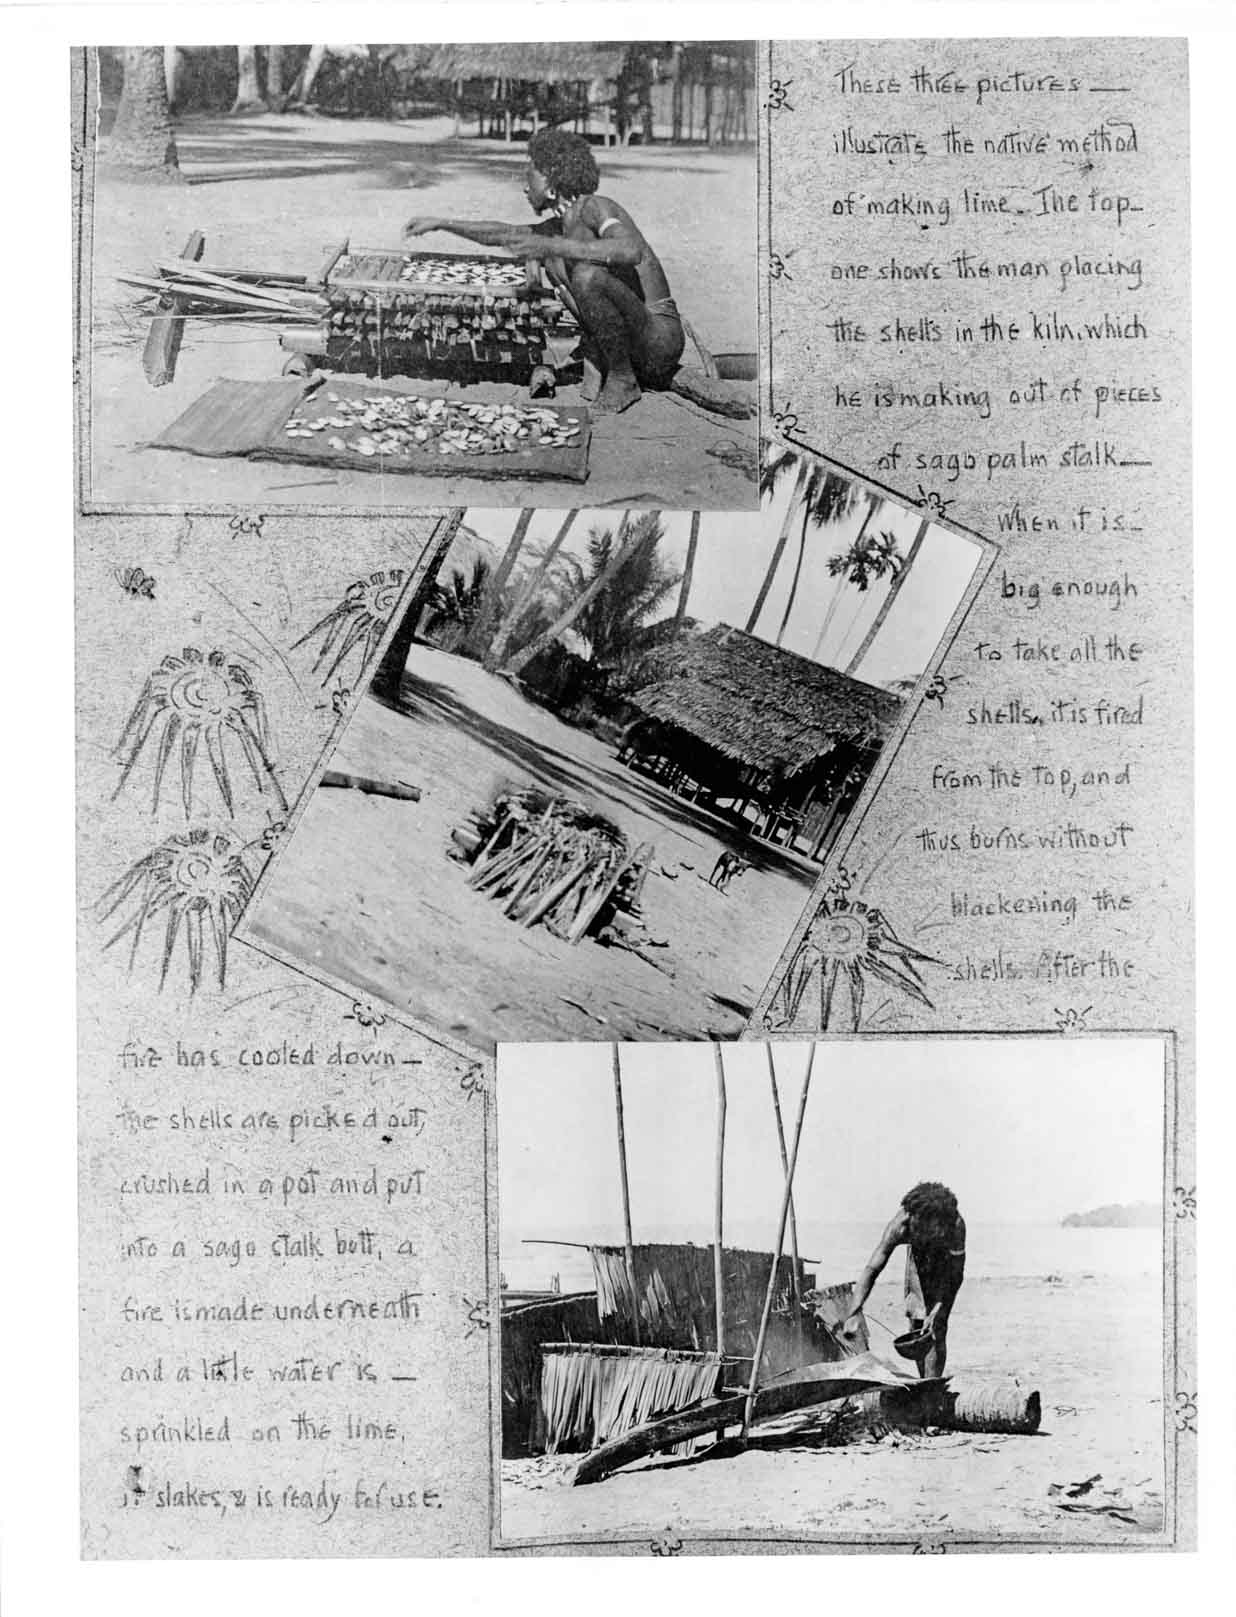 These three pictures —
illustrate the native method
of making lime. The top—
one shows the man placing
the shells in the kiln, which
he is making out of pieces
of sago palm stalk —
When it is —
big enough
to take all the
shells, it is fired
from the top, and
thus burns without
blackening the
shells. After the
fire has cooled down —
the shells are picked out,
crushed in a pot and put
into a sago stalk butt, a
fire is made underneath
and a little water is —
sprinkled on the lime,
it slakes, & is ready for use.